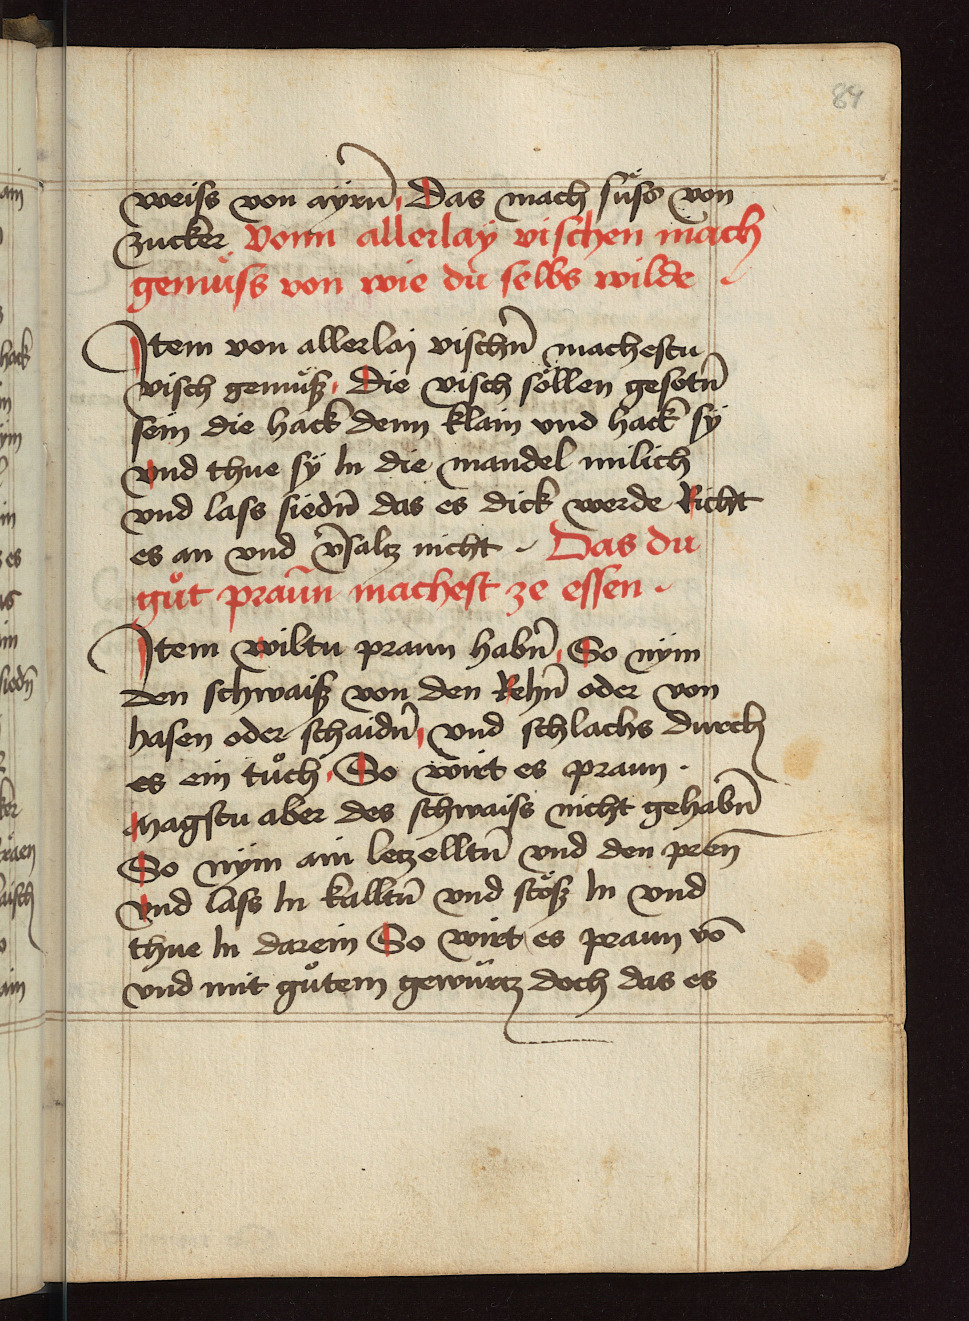 84
weiss von ayrn̄ Das mach süss von
zucker Vonn allerlay vischen mach
gemüss von wie du selbs wilde
Item von allerlaj vischn̄ machestu
visch gemüß Die visch söllen gesotn̄
sein die hack denn klain vnd hack sy
vnd thue sÿ In die mandel milich
vnd lass siedn̄ das es dick werde Richt
es an vnd v̄saltz nicht Das du
gůt praūn machest ze essen
Item wiltu praun habn̄ So nÿm
den schwaiß von den Rehn̄ oder von
hasen oder schaidn̄ vnd schlachs durch
es ein tůch So wirt es praun
Magstu aber des schwaiss nicht gehabn̄
So nÿm ain letzelltn̄ vnd den pren̄
vnd lass In kalltn̄ vnd stöß In vnd
thue In darein So wirt es praun vō
vnd mit gůtem gewürtz doch das es